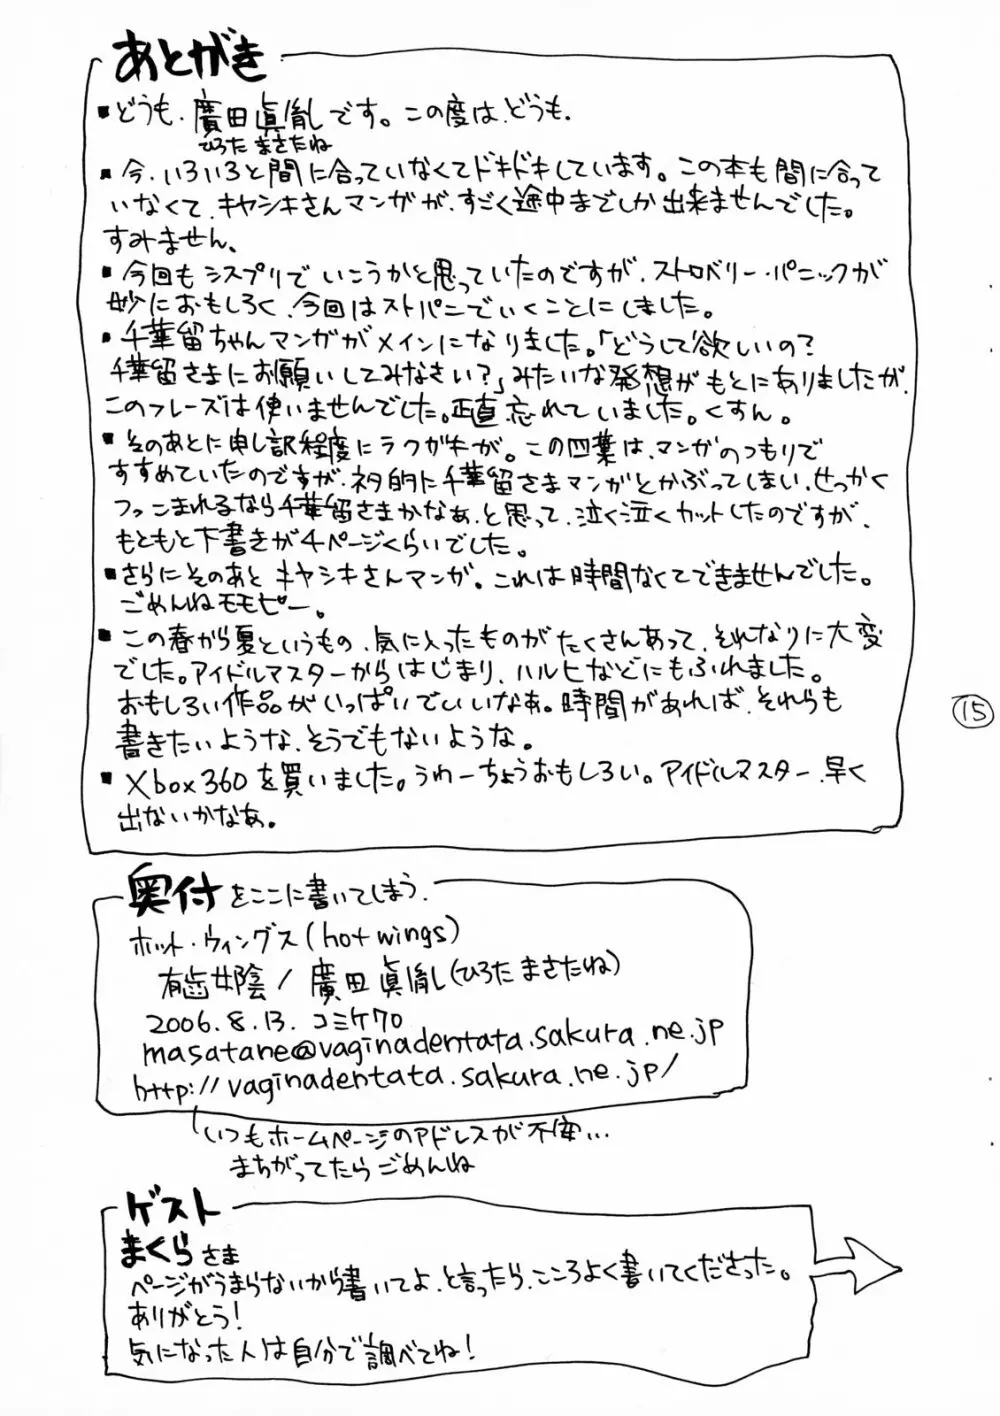 あとがき
▪どうも、廣田眞胤です。この度は、どうも。
ひろた まさたね
▪今、いろいろと間に合っていなくてドキドキしています。この本も間に合って
いなくて、キヤシキさんマンガが、すごく途中までしか出来ませんでした。
すみません。
▪今回もシスプリでいこうかと思っていたのですが、ストロベリー・パニックが
妙におもしろく、今回はストパニでいくことにしました。
▪千華留ちゃんマンガがメインになりました。「どうして欲しいの?
千華留さまにお願いしてみなさい?」みたいな発想がもとにありましたが、
このフレーズは使いませんでした。正直忘れていました。くすん。
▪そのあとに申し訳程度にラクガキが。この四葉は、マンガのつもりで
すすめていたのですが、ネタ的に千華留さまマンガとかぶってしまい、せっかく
つっこまれるなら千華留さまかなぁ、と思って、泣く泣くカットしたのですが、
もともと下書きが4ページくらいでした。
▪さらにそのあと キヤシキさんマンガ。これは時間なくてできませんでした。
ごめんねモモピー。
▪この春から夏というもの、気に入ったものがたくさんあって、それなりに大変
でした。アイドルマスターからはじまり、ハルヒなどにもふれました。
おもしろい作品がいっぱいでいいなあ。時間があれば、それらも
書きたいような、そうでもないような。
▪Xbox360を買いました。うわーちょうおもしろい。アイドルマスター、早く
出ないかなあ。
15
奥付をここに書いてしまう。
ホット・ウィングス(hot wings)
有歯女陰/廣田眞胤(ひろた まさたね)
2006.8.13. コミケ70
masatane@vaginadentata.sakura.ne.jp
http://vaginadentata.sakura.ne.jp/
いつもホームページのアドレスが不安...
まちがってたらごめんね
ゲスト
まくらさま
ページがうまらないから書いてよ、と言ったら、こころよく書いてくださった。
ありがとう!
気になった人は自分で調べてね!